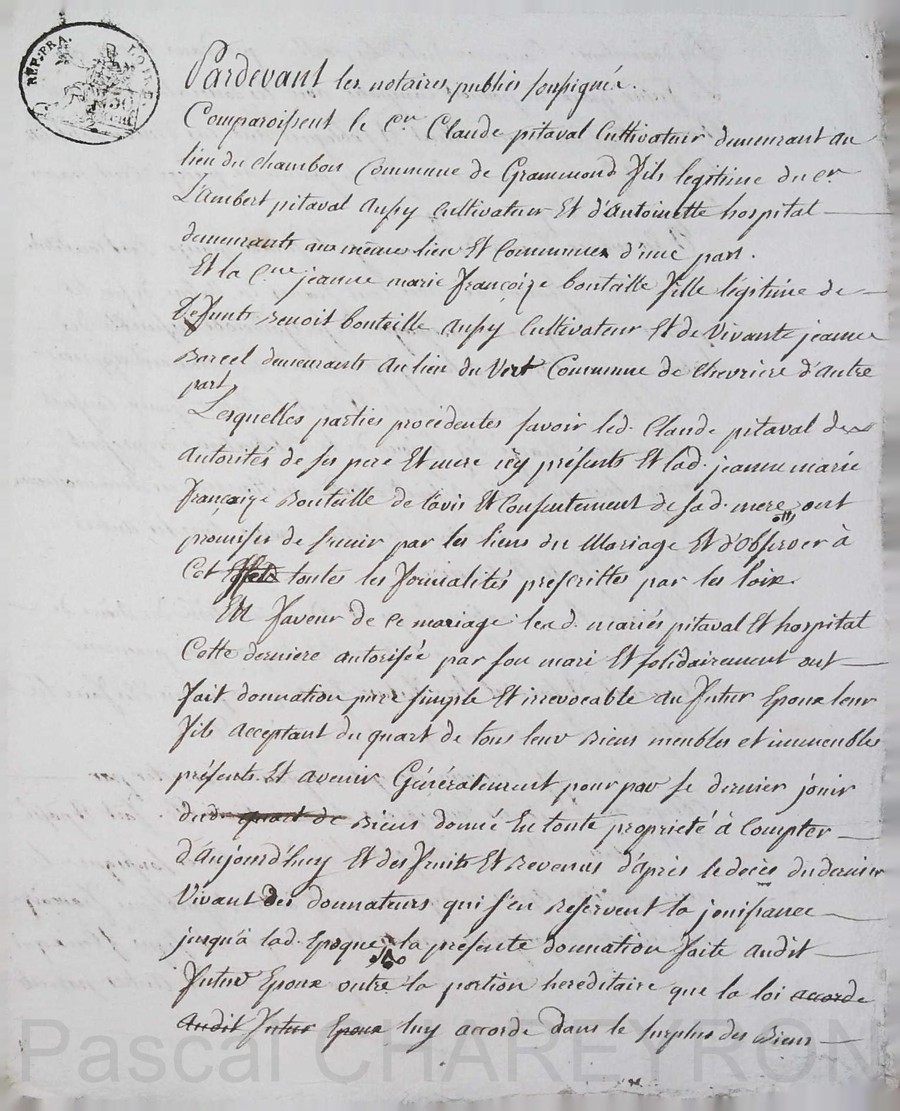 REP. FRA.
LOIRE.
Pardevant les notaires publics soussignés.
Comparoissent le Cen Claude pitaval Cultivateur demeurant au
lieu du Chambon Commune de Grammond fils legitime du Cen
L'Ambert pitaval Aussy Cultivateur Et d'Antoinette hospital
demeurants aux mêmes lieu Et Communes d'une part.
Et la Cne jeanne marie françoize bouteille fille légitime de
Defunt Benoit bouteille Aussy Cultivateur Et de Vivante jeanne
Barcel demeurants Au lieu du Vert Commune de Chevriere d'Autre
part
Lesquelles parties procédentes savoir led. Claude pitaval des
Autorités de ses pere Et mere icy présents Et lad. jeanne marie
françoize Bouteille de l'avis Et Consentement de sad. mere ont
promisse de s'unir par les liens du Mariage Et d'Observer à
Cet Effet toutes les formalités prescrittes par les loix.
EN faveur de ce mariage lesd. mariés pitaval Et hospital
Cette derniere autorisée par son mari Et solidairement ont
fait donnation pure simple Et irrevocable au futur Epoux leur
fils acceptant du quart de tous leur Biens meubles et immeubles
présents Et avenir Généralement pour par se dernier jouir
dud. quart de Biens donné En toute propriété à Compter
d'Aujourd'huy Et des fruits Et Revenus d'après le deces du dernier
Vivant des donnateurs qui s'en Reservent la jouissance
jusqu'à lad. Epoque, la présente donnation faite audit
futur Epoux outre la portion hereditaire que la loi accorde
Audit futur Epoux luy accorde dans le surplus des Biens
Pascal CHAREYRON